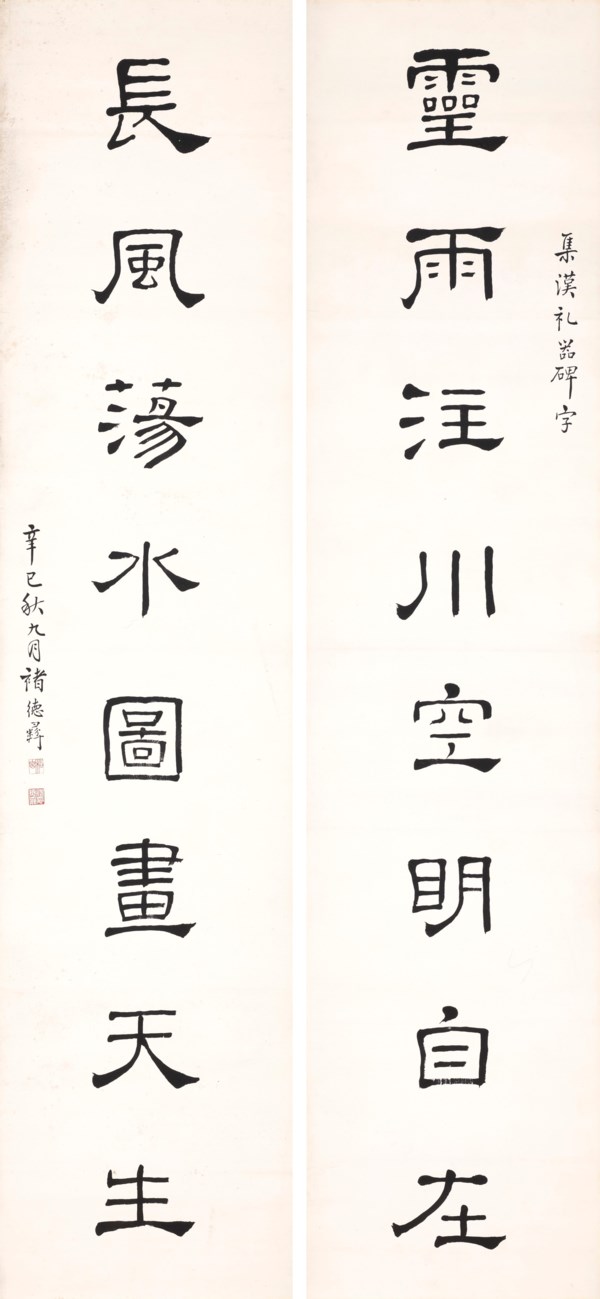 集漢礼器碑字
靈雨注川空明自在
長風蕩水圖畫天生
辛巳秋九月褚德彝